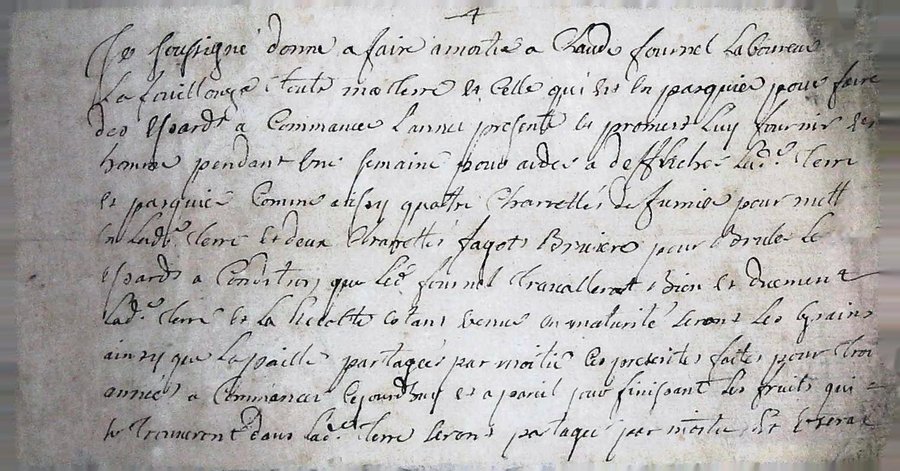 4
Je soussigné donne a faire a moitié a Claude fournel Laboureur
La fouillouze toute ma terre et celle qui est en pasquier pour faire
des Essards a Commancer Lannee presente et promets Luy fournir un
homme pendant une semaine pour aider a deffricher Lade terre
et pasquier Comme aussy quatre Charrettés de fumier pour mettre
en Lade terre et deux Charrettés fagots Bruiere pour Bruler Le
Essards a Condition que Led fournel travallerat Bien et duement
Lade terre et la Recolte Estant venue en maturité seront Les Grains
ainsy que La paille partagées par moitié Ces presentes faites pour troi
années a Commancer Cejourdhuy et a pareil jour finissant Les fruits qui
se trouveront dans lade terre seront partagé par moitié Et